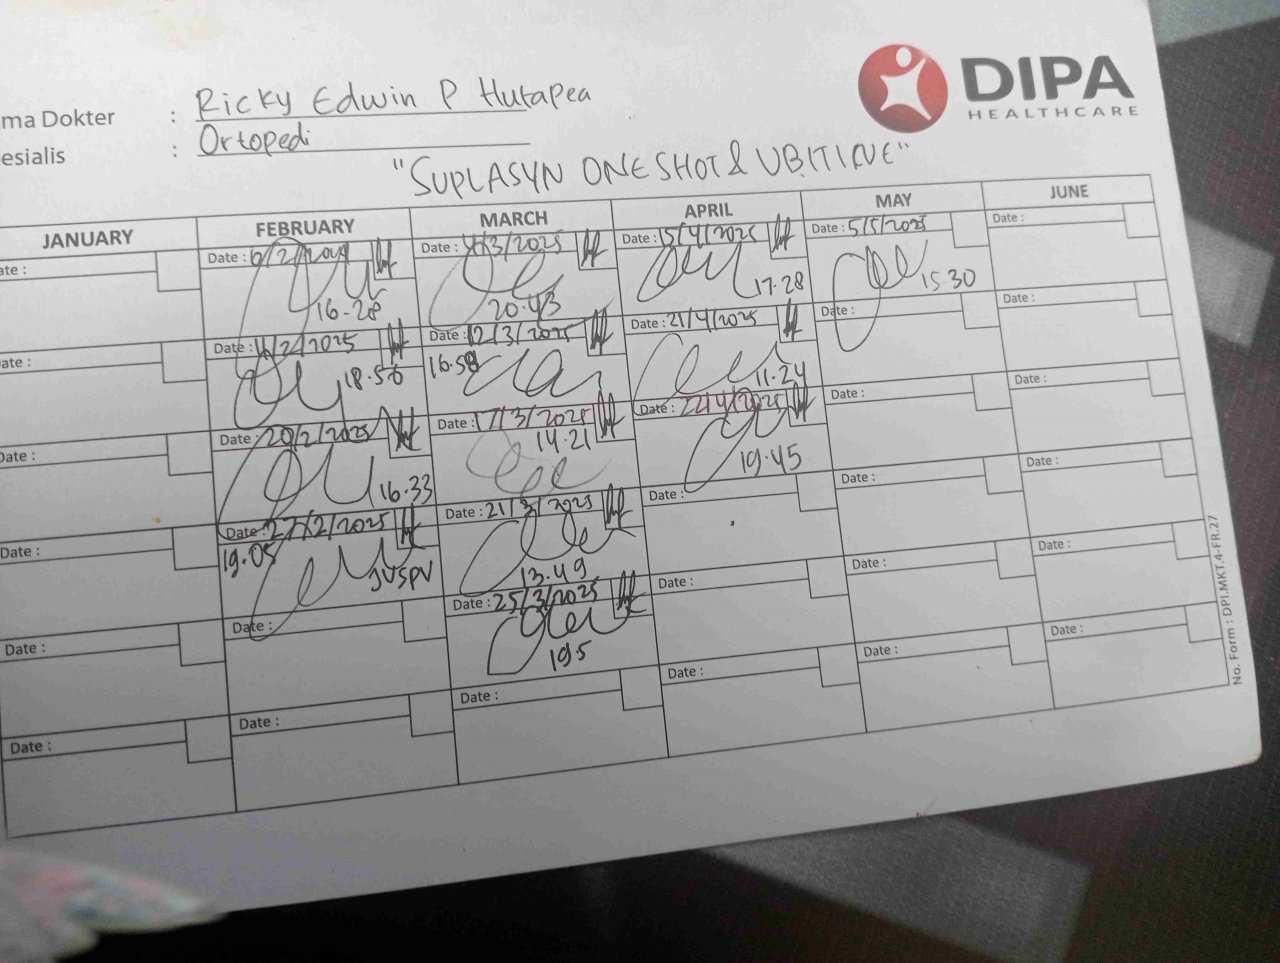 DIPA
HEALTHCARE
ma Dokter : Ricky Edwin P Hutapea
esialis : Ortopedi
"SUPLASYN ONE SHOT &
JANUARY FEBRUARY MARCH APRIL MAY JUNE
ate: Date: 6/2/ Date: /3/2025 Date: 15/4/2025 Date: 5/5/2025 Date:
16.28 20.43 17.28 15.30
ate: Date: /2/2025 Date: 12/3/2025 Date: 21/4/2025 Date: Date:
18.56 16.58 11.24
Date: Date: 20/2/2025 Date: 17/3/2025 Date: 22/4/2025 Date: Date:
16.33 14.21 19.45
Date: Date: 27/2/2025 Date: 21/3/2025 Date: Date: Date:
19.05 JVSPV 13.49
Date: Date: Date: 25/3/2025 Date: Date: Date:
19.5
Date: Date: Date: Date: Date: Date:
No. Form : DPI.MKT.4-FR.27